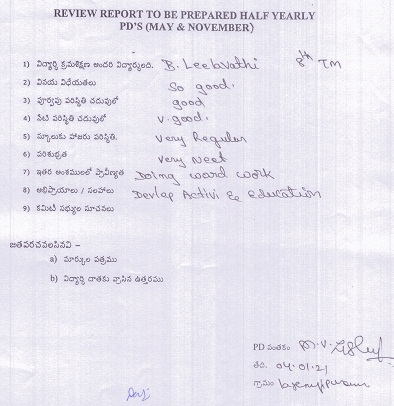 REVIEW REPORT TO BE PREPARED HALF YEARLY
PD'S (MAY & NOVEMBER)
1) విద్యార్థి క్రమశిక్షణ అందరి విద్యార్థులది. B. Leelavathi 8th TM
2) వినయ విధేయతలు So good.
3) పూర్వపు పరిస్థితి చదువులో good
4) నేటి పరిస్థితి చదువులో v. good.
5) స్కూలుకు హాజరు పరిస్థితి. Very Regular
6) పరిశుభ్రత Very Neet
7) ఇతర అంశములలో ప్రావీణ్యత Doing word work
8) అభిప్రాయాలు / సలహాలు Devlep Activi & education
9) కమిటీ సభ్యుల సూచనలు
జతపరచవలసినవి –
a) మార్కుల పత్రము
b) విద్యార్థి దాతకు వ్రాసిన ఉత్తరము
PD సంతకం M.V.
తేది. 04.01.21
గ్రామం